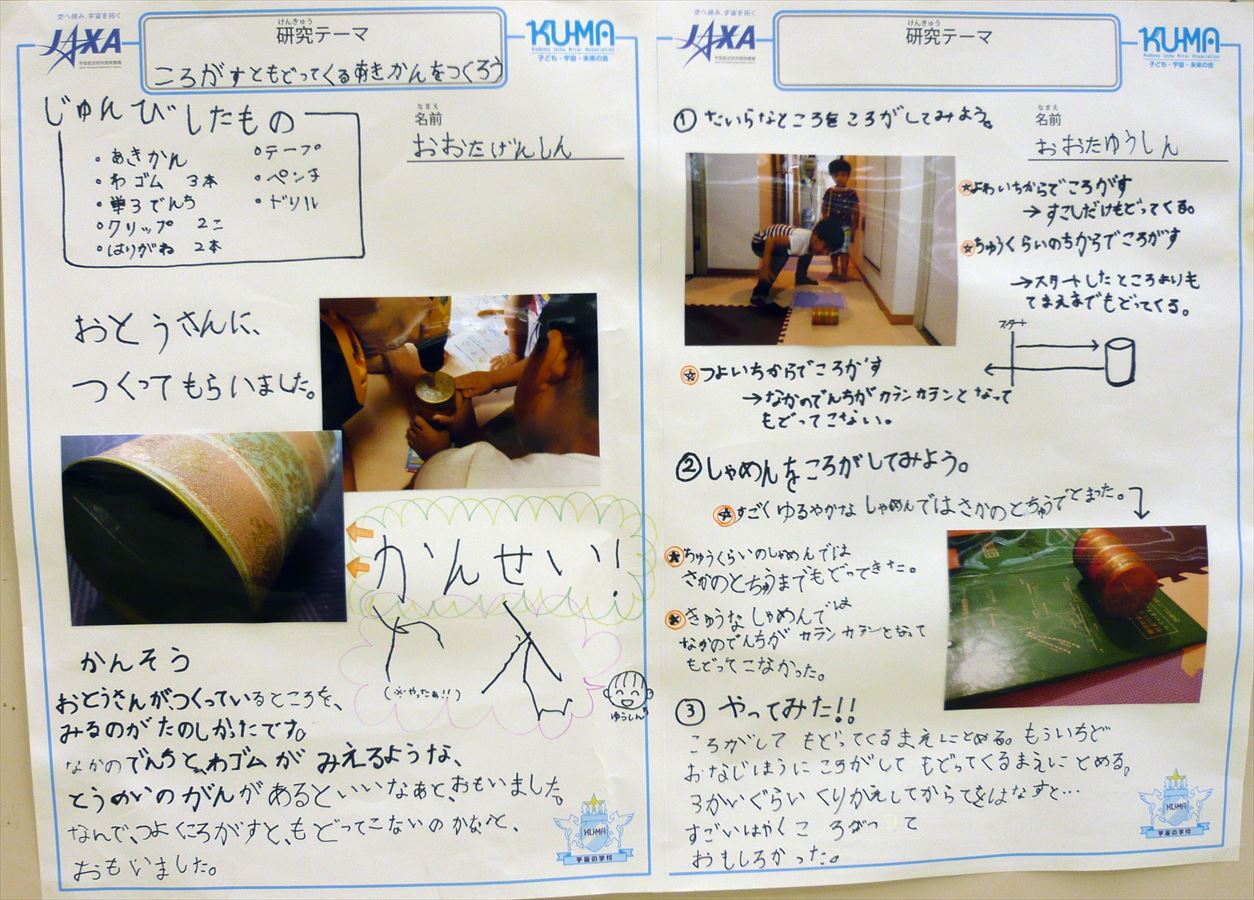 空へ挑み、宇宙を拓く
JAXA
宇宙航空研究開発機構
けんきゅう
研究テーマ
ころがすともどってくるあきかんをつくろう
KU-MA
Kodomo Uchu Mirai Association
子ども・宇宙・未来の会
じゅんびしたもの
・あきかん
・わゴム 3本
・単3でんち
・クリップ 2こ
・はりがね 2本
・テープ
・ペンチ
・ドリル
なまえ
名前
おおたげんしん
おとうさんに、
つくってもらいました。
かんせい!!
(※やったぁ!!)
ゆうしん
かんそう
おとうさんが、つくっているところを、
みるのがたのしかったです。
なかのでんちと、わゴムがみえるような、
とうめいのかんがあるといいなぁと、おもいました。
なんで、つよくころがすと、もどってこないのかなと、
おもいました。
KU-MA
宇宙の学校
空へ挑み、宇宙を拓く
JAXA
宇宙航空研究開発機構
けんきゅう
研究テーマ
KU-MA
Kodomo Uchu Mirai Association
子ども・宇宙・未来の会
① たいらなところをころがしてみよう。
なまえ
名前
おおたゆうしん
☆よわいちからでころがす
→すこしだけもどってくる。
☆ちゅうくらいのちからでころがす
→スタートしたところよりも
てまえまでもどってくる。
スタート
☆つよいちからでころがす
→なかのでんちがカランカランとなって
もどってこない。
② しゃめんをころがしてみよう。
☆すごくゆるやかなしゃめんではさかのとちゅうでとまった。
★ちゅうくらいのしゃめんでは
さかのとちゅうまでもどってきた。
★きゅうなしゃめんでは
なかのでんちがカランカランとなって
もどってこなかった。
③ やってみた!!
ころがしてもどってくるまえにとめる。もういちど
おなじほうにころがしてもどってくるまえにとめる。
3かいぐらいくりかえしてからてをはなすと…
すごいはやくころがって
おもしろかった。
KU-MA
宇宙の学校